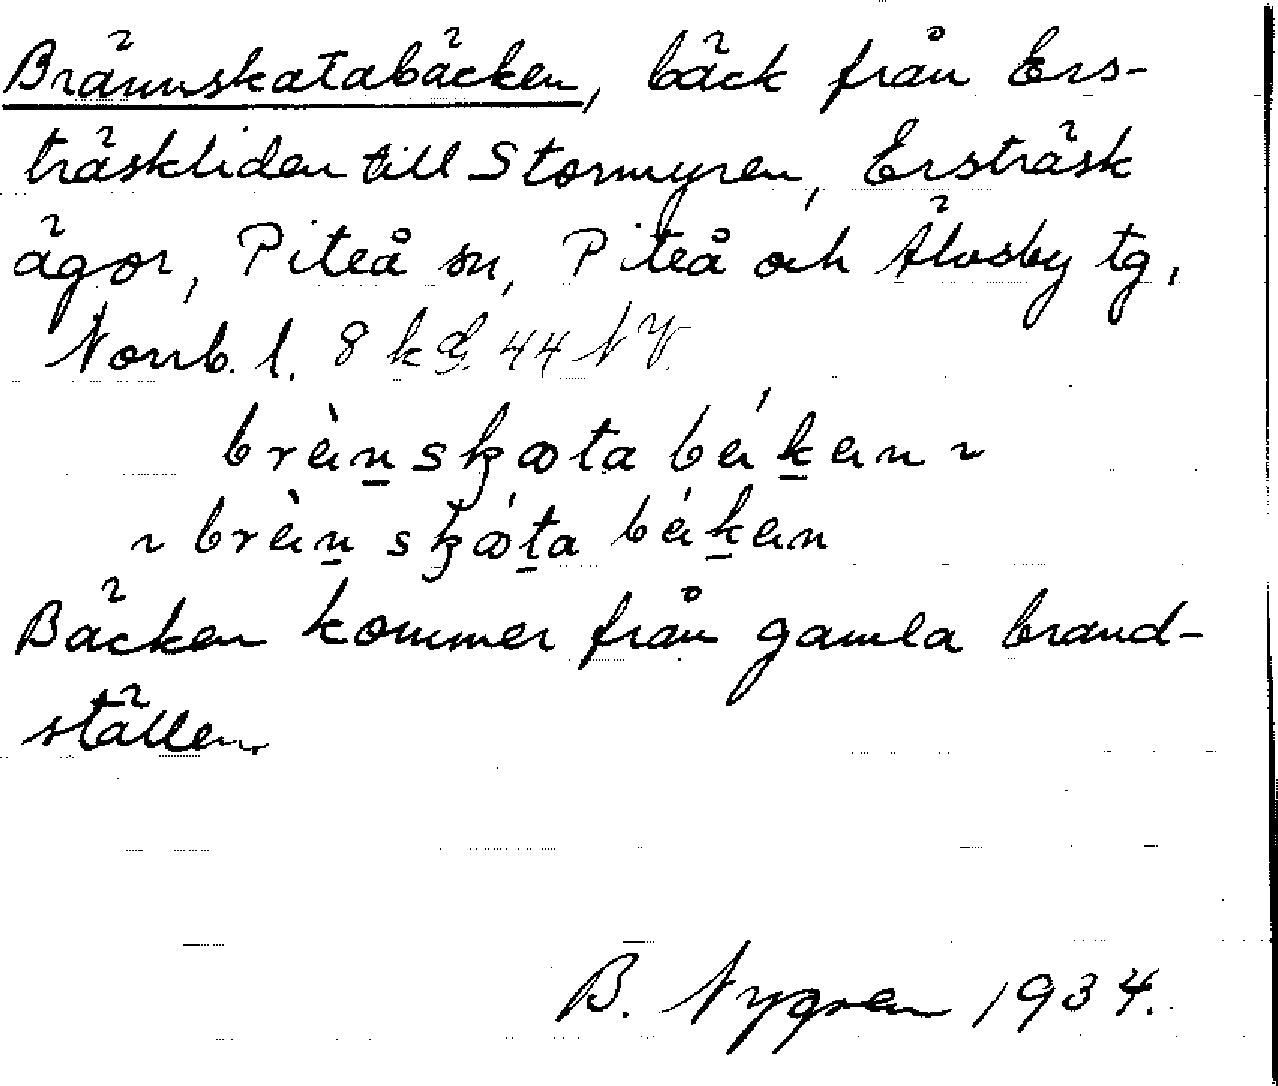 Brännskatabäcken, bäck från Ers-
träskliden till Stormyren, Ersträsk
ägor, Piteå sn, Piteå och Älvsby tg,
Norrb. l. 8 k 44 NV.
Bäcken kommer från gamla brand-
ställen.
B. Nygren 1934.